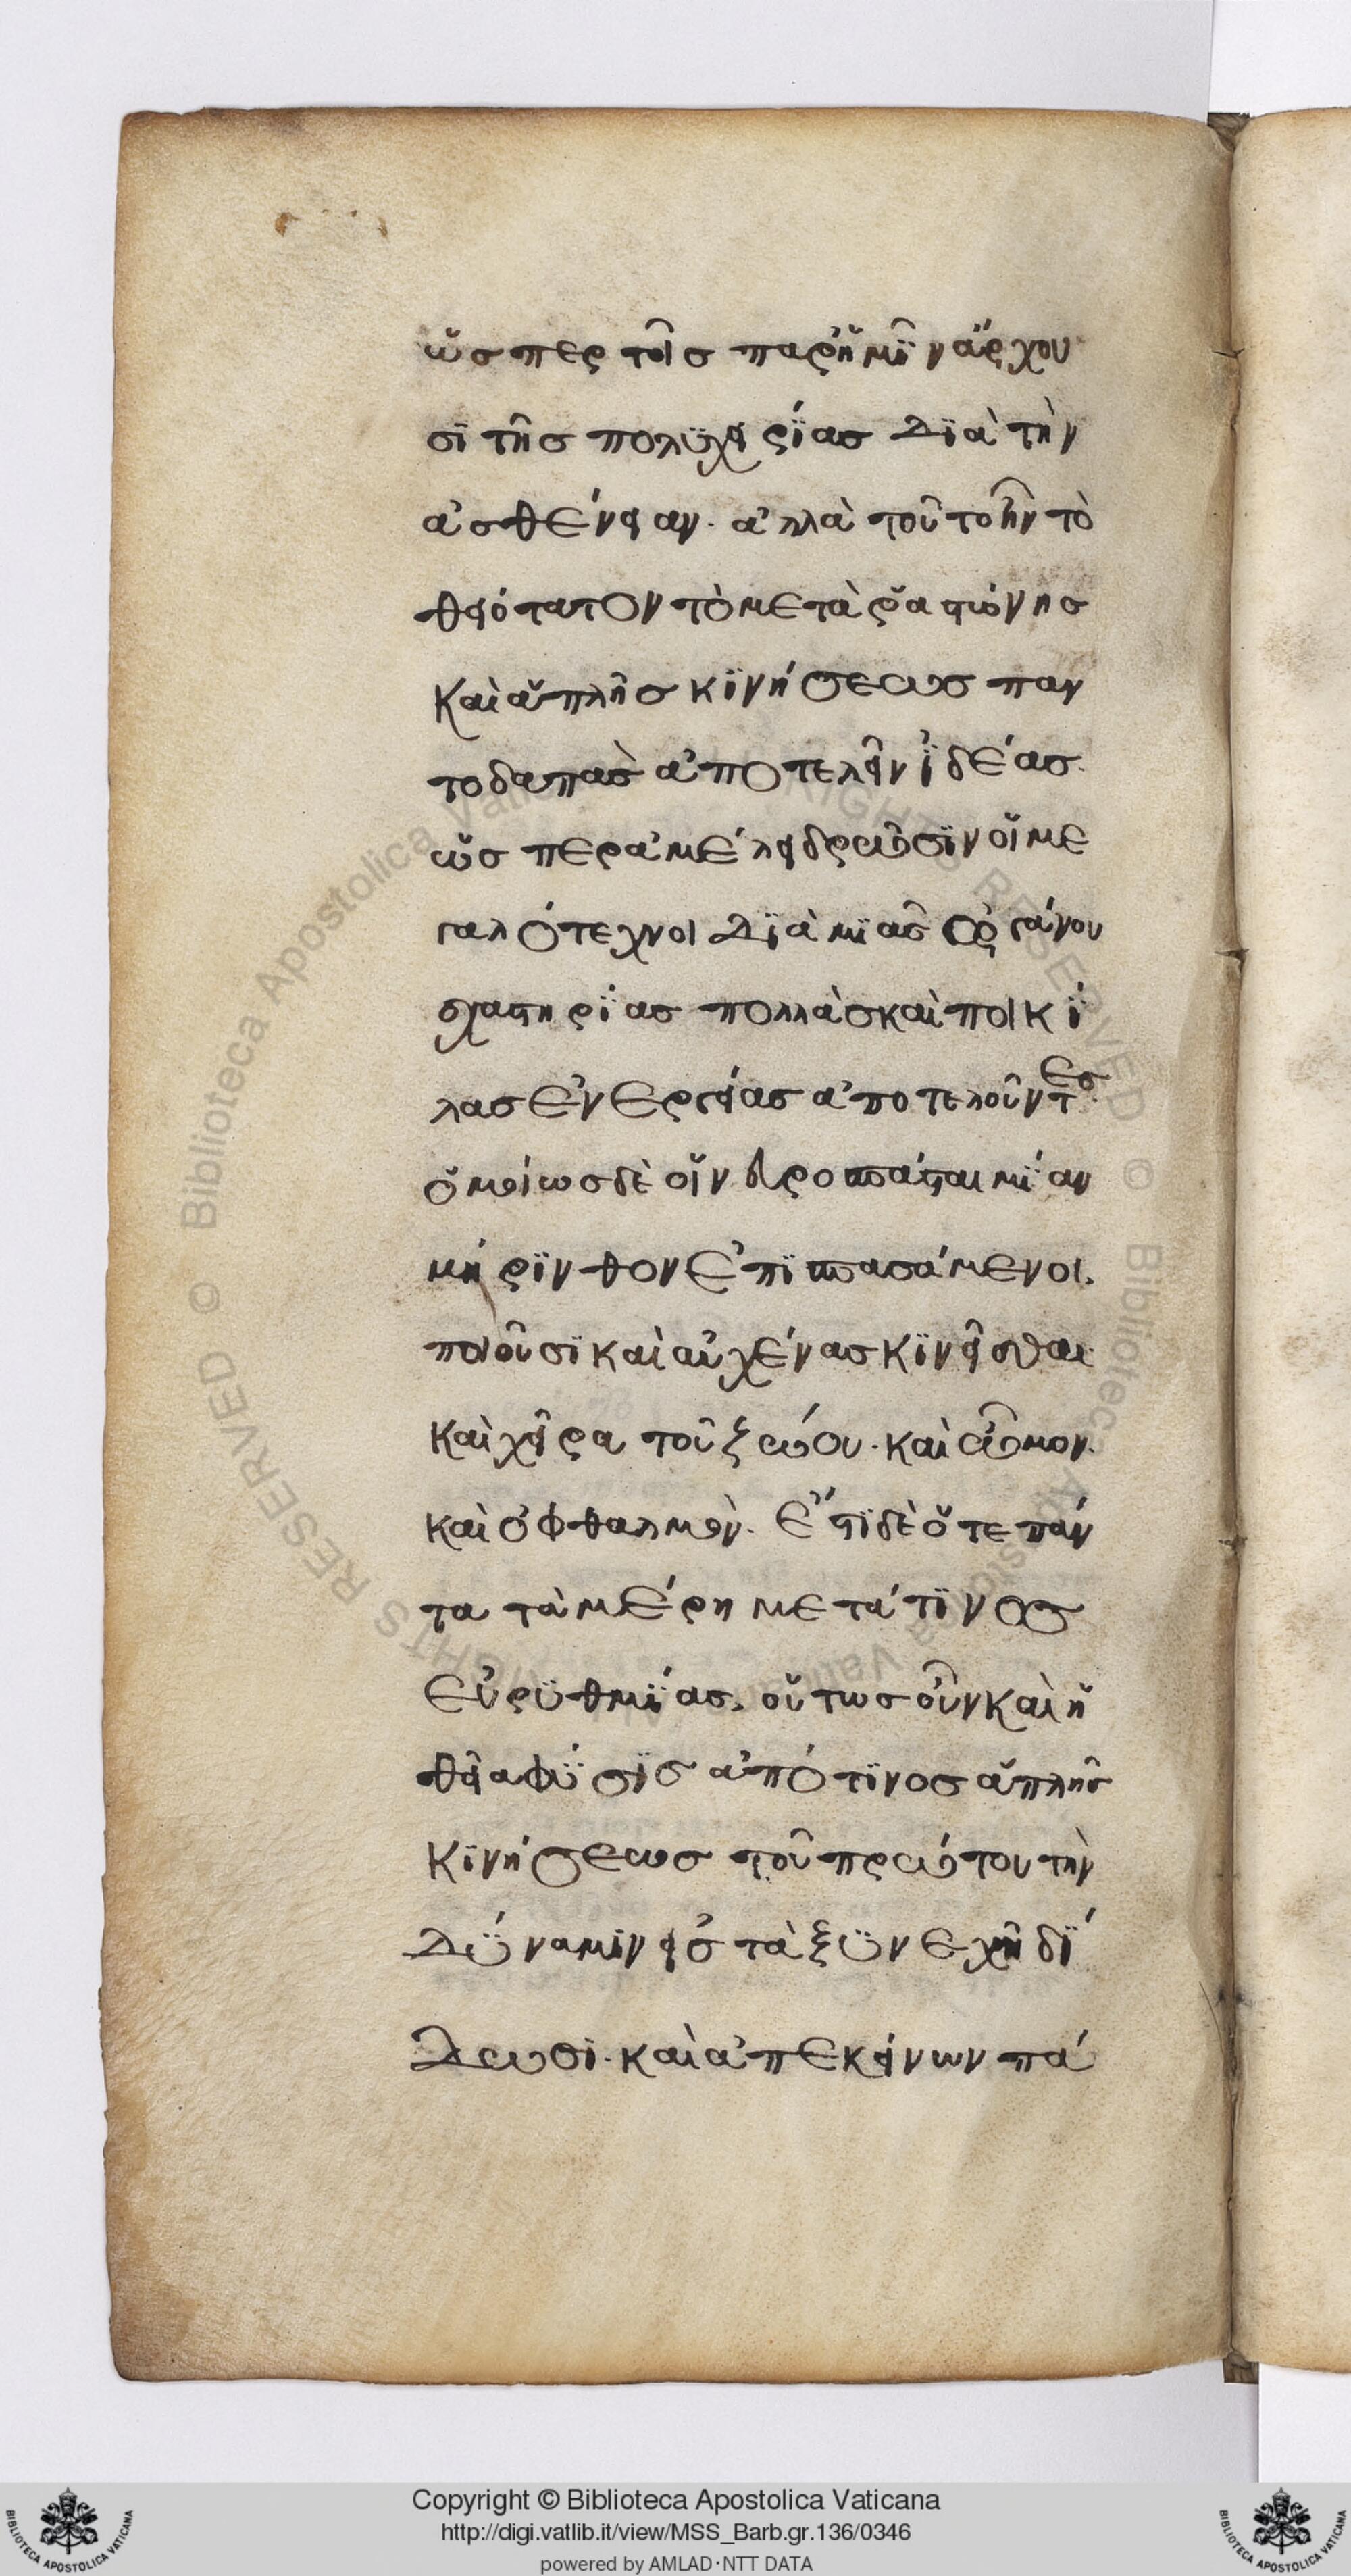 ὥσπερ τοῖς παρ' ἡμῖν ἄρχου
σι τῆς πολυχειρίας διὰ τὴν
ἀσθένειαν. ἀλλὰ τοῦτο ἦν τὸ
θειότατον τὸ μετὰ ῥαστώνης
καὶ ἁπλῆς κινήσεως παν
τοδαπὰς ἀποτελεῖν ἰδέας.
ὥσπερ ἀμέλει δρῶσιν οἱ με
γαλότεχνοι διὰ μιᾶς ὀργάνου
σχαστηρίας πολλὰς καὶ ποικί
λας ἐνεργείας ἀποτελοῦντες.
ὁμοίως δὲ οἱ νευροσπάσται μίαν
μήρινθον ἐπισπασάμενοι.
ποιοῦσι καὶ αὐχένα κινεῖσθαι
καὶ χεῖρα τοῦ ζώου. καὶ ὦμον.
καὶ ὀφθαλμὸν. ἔστι δὲ ὅτε πάν
τα τὰ μέρη μετά τινος
εὐρυθμίας. οὕτως οὖν καὶ ἡ
θεία φύσις ἀπό τινος ἁπλῆς
κινήσεως τοῦ πρώτου τὴν
δύναμιν εἰς τὰ ξυνεχῆ δί
δωσι. καὶ ἀπ' ἐκείνων πά
Copyright © Biblioteca Apostolica Vaticana
http://digi.vatlib.it/view/MSS_Barb.gr.136/0346
powered by AMLAD·NTT DATA